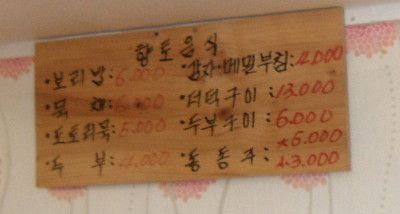 향토음식
·보리밥:6.000
·감자·메밀부침:4.000
·묵 채:6.000
·더덕구이:13.000
·도토리묵:5.000
·두부구이:6.000
·두 부:4.000
·동동주:大6.000
小3.000